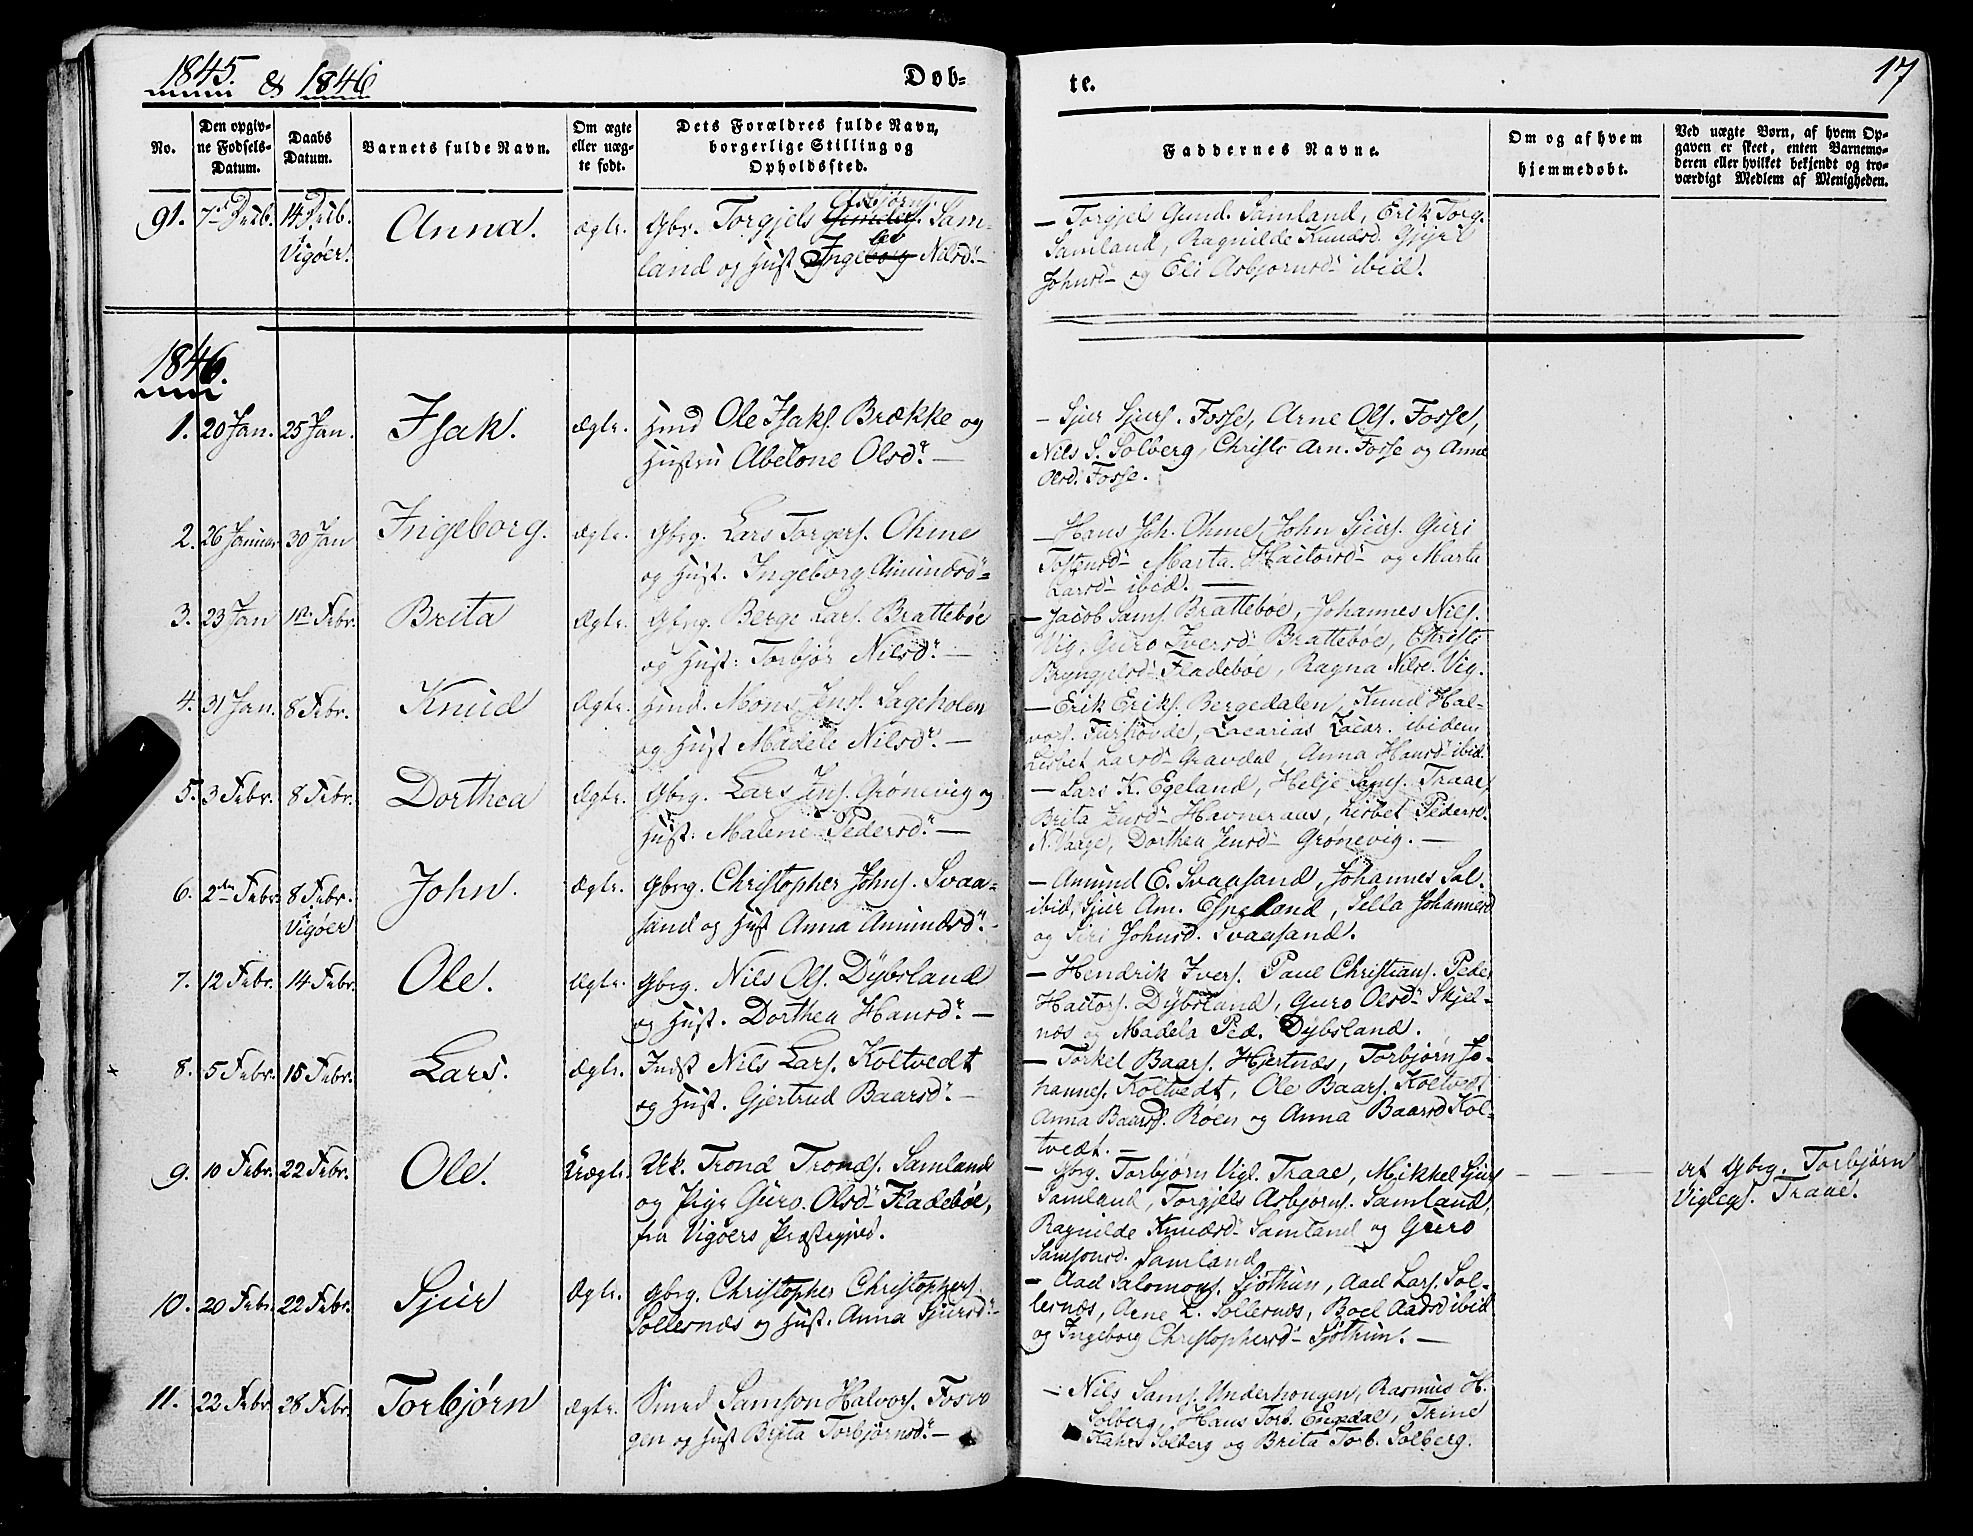 1845. & 1846
Døb-
te.
17
No.
Den opgiv-
ne Fødsels-
Datum.
Daabs
Datum.
Barnets fulde Navn.
Om ægte
eller uæg-
te født.
Dets Forældres fulde Navn,
borgerlige Stilling og
Opholdssted.
Faddernes Navne.
Om og af hvem
hjemmedøbt.
Ved uægte Børn, af hvem Op-
gaven er skeet, enten Barnemo-
deren eller hvilket bekjendt og tro-
værdigt Medlem af Menigheden.
91. 7de Decb. 14 Decb. Anna. Ægte. Gbr. Torgjels Asbjørns. Sam-
Vigøer. land og Hust Ingeborg Nilsd. —
— Torgjel Gund. Samland, Erik Torg.
Samland, Ragnilde Knudsd. Gjeril
Johnsd. og Eli Asbjørnsd. ibid.
1846.
1. 20 Jan. 25 Jan. Isak. Ægte. Hmd Ole Isaks. Brække og
Hustru Abelone Olsd. —
— Sjur Sjurs. Fosse, Arne Ols. Fosse,
Nils S. Solberg, Christi Arn. Fosse og Anna
Olsd. Fosse.
2. 26 Januar 30 Jan Ingeborg. Ægte. Gbrg. Lars Torgers. Ohme
og Hust. Ingeborg Amundsd.
— Hans Joh. Ohme, John Sjurs. Guri
Tostensd. Marta Haitorsd. og Marta
Larsd. ibid. —
3. 23 Jan 1ste Febr. Brita Ægte. Gbrg. Berge Lars. Brattebøe
og Hust: Torbjør Nilsd. —
— Jacob Sams. Brattebøe, Johannes Nils.
Vig, Guro Iversd. Brattebøe, Christi
Bryngjelsd. Fladebøe, Ragna Nilsd. Vig.
4. 31 Jan. 8 Febr. Knud Ægte. Hmd. Mons Jens. Lageholen
og Hust Madele Nilsd. —
— Erik Eriks. Bergedalen, Knud Hal-
vors. Furhovde, Zacarias Zacar. ibidem
Lisbet Larsd. Gravdal, Anna Hansd. ibid.
5. 3 Febr. 8 Febr. Dorthea Ægte. Gbrg. Lars Jens. Grønevig og
Hust: Malene Pedersd. —
— Lars K. Egeland, Helje Traae
Brita Jensd. Havneraas, Lisbet Pedersd.
N. Vaage, Dorthea Jensd. Grønevig. —
6. 2den Febr. 8 Febr. John. Ægte. Gbrg. Christopher Johns. Svaa-
Vigøer sand og Hust Anna Amundsd. —
— Amund E. Svaasand, Johannes Sal.
ibid, Sjur Am. Espeland, Sella Johannesd
og Siri Johnsd. Svaasand.
7. 12 Febr. 14 Febr. Ole. Ægte. Gbrg. Nils Ols. Dybsland
og Hust. Dorthea Hansd. —
— Hendrik Ivers. Paul Christians. Peder
Haitors. Dybsland, Guro Olsd. Skjel-
næs og Madela Ped. Dybsland.
8. 5 Febr. 15 Febr. Lars. Ægte. Indst Nils Lars. Koltvedt
og Hust. Gjertrud Baarsd. —
— Torkel Baars. Hjertnæs, Torbjørn Jo-
hannes. Koltvedt, Ole Baars. Koltvedt
Anna Baarsd. Røen og Anna Baarsd Kol-
tvedt. —
9. 10 Febr. 22 Febr. Ole. Uægte. Uk. Trond Tronds. Samland
og Pige Guro Olsd. Fladebøe,
fra Vigøers Præstegjeld.
— Gbrg. Torbjørn Vigl. Traae, Mikkel Sjurs
Samland, Torgjels Asbjørns. Samland,
Ragnilde Knudsd. Samland og Guro
Samsonsd. Samland
af Gbrg. Torbjørn
Vigleys. Traae.
10. 20 Febr. 22 Febr. Sjur Ægte. Gbrg. Christopher Christophers.
Sollesnæs og Hust. Anna Sjursd. —
— Aad Salomons. Sjøthun, Aad Lars. Sol-
lesnæs, Arne L. Sollesnæs, Boel Aadsd ibid
og Ingeborg Christophersd. Sjøthun. —
11. 22 Febr. 28 Febr. Torbjørn Ægte. Smed Samson Halvors. Fosvo
gen og Hust Brita Torbjørnsd. —
— Nils Sams. Underhougen, Rasmus H.
Solberg, Hans Torb. Engedal, Trine
Kahrs Solberg og Brita Torb. Solberg.